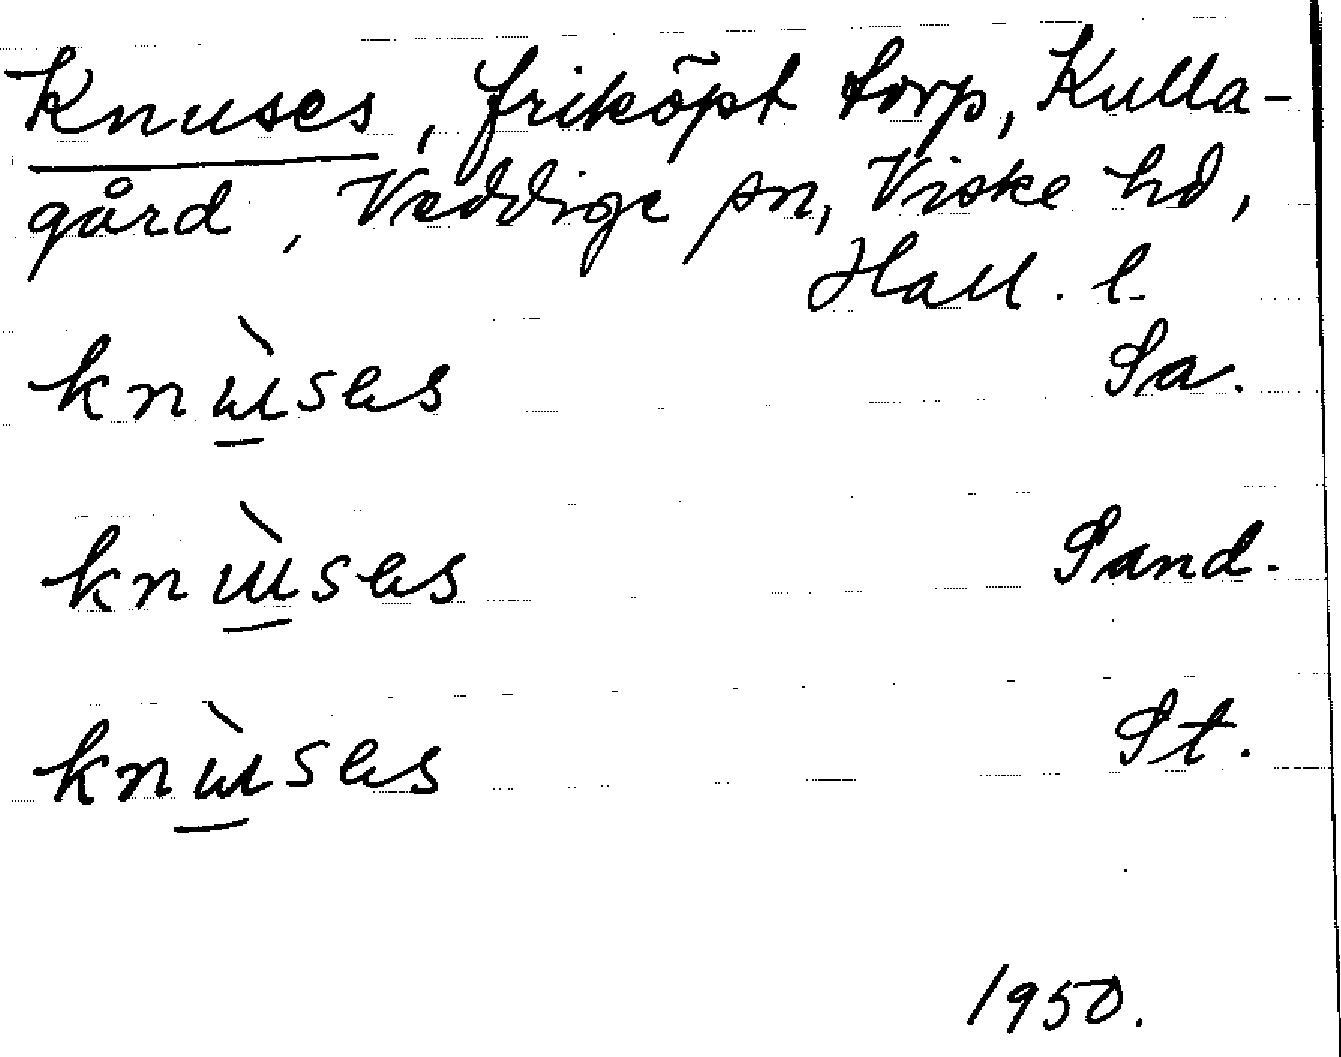 Knuses, friköpt torp, Kulla-
gård, Veddige sn, Viske hd,
Hall. l.
knùses Sa.
knùses Sand.
knùses St.
1950.